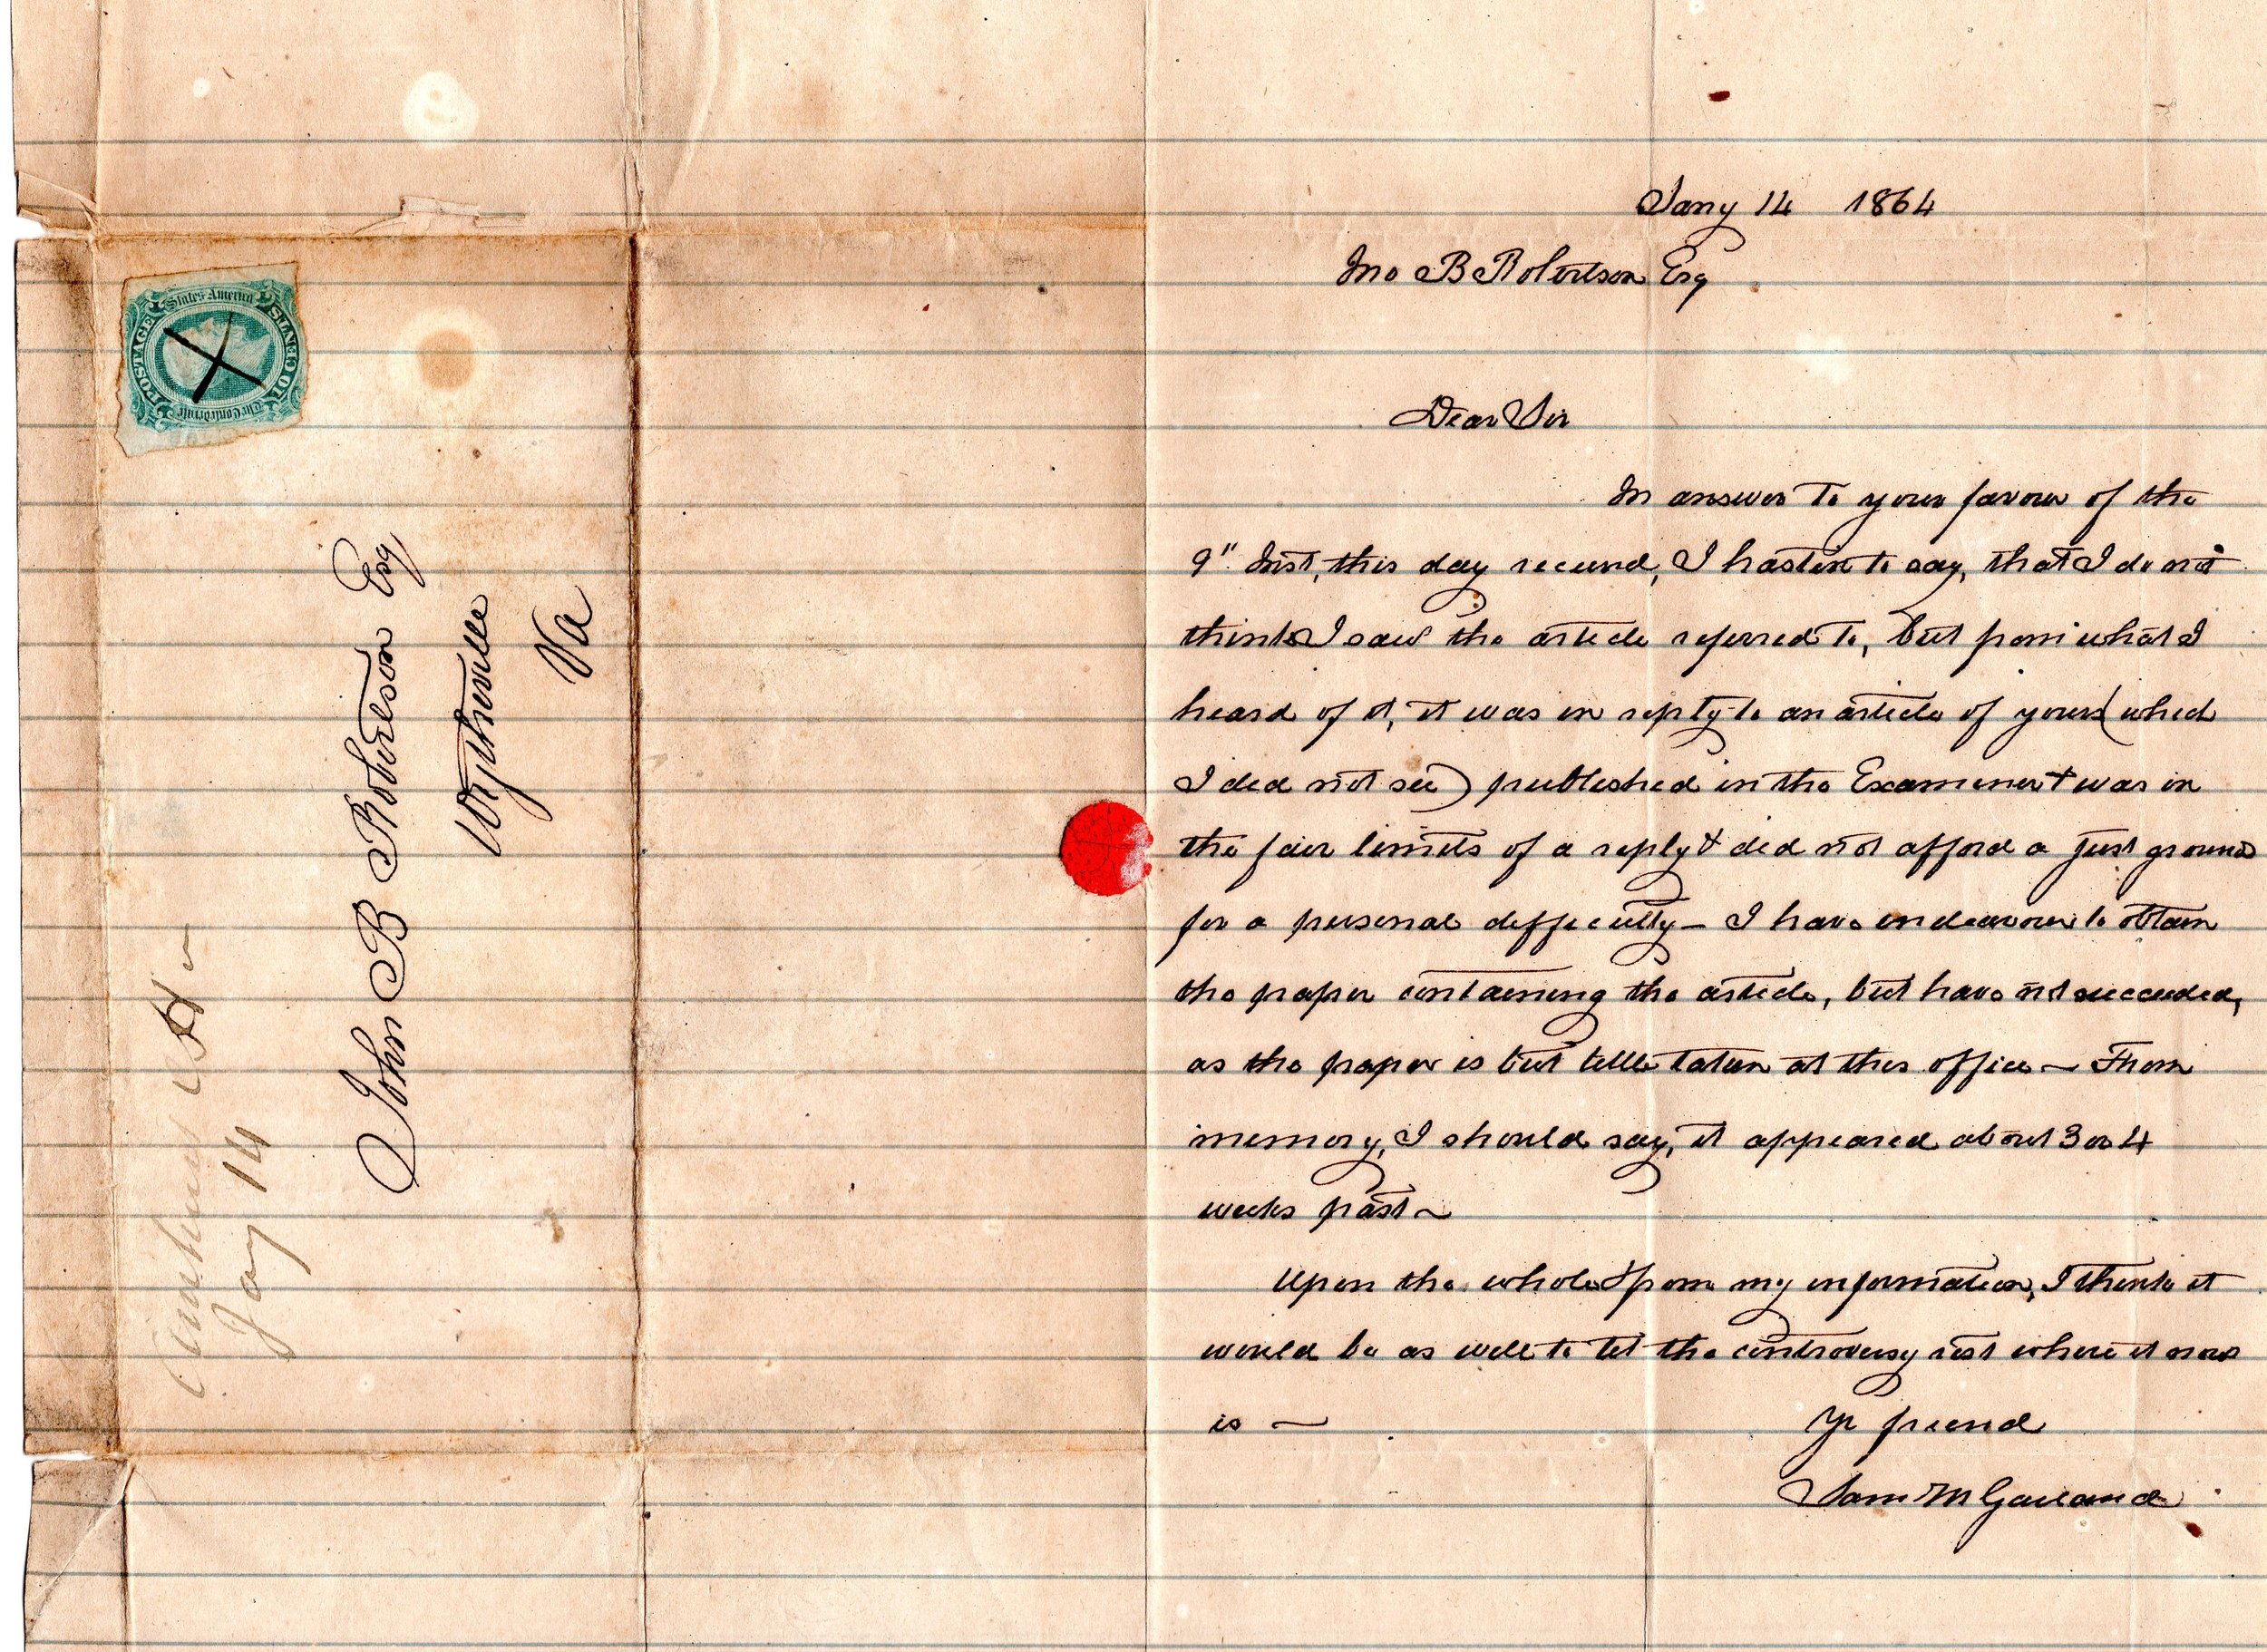 Jany 14 1864
Jno B Robertson Esq
Dear Sir
In answer to your favour of the
9" Inst, this day received, I hasten to say, that I do not
think I saw the article referred to, but from what I
heard of it, it was in reply to an article of yours (which
I did not see) published in the Examiner & was in
the fair limits of a reply & did not afford a just ground
for a personal difficulty – I have endeavour to obtain
the paper containing the article, but have not succeeded,
as the paper is but little taken at this office – From
memory, I should say, it appeared about 3 or 4
weeks past ~
Upon the whole & from my information, I think it
would be as well to let the controversy rest where it now
is —
Yr friend
Sam M Garland
John B Robertson Esq
Wytheville
Va
Jany 14
POSTAGE
The Confederate
States America
10 CENTS